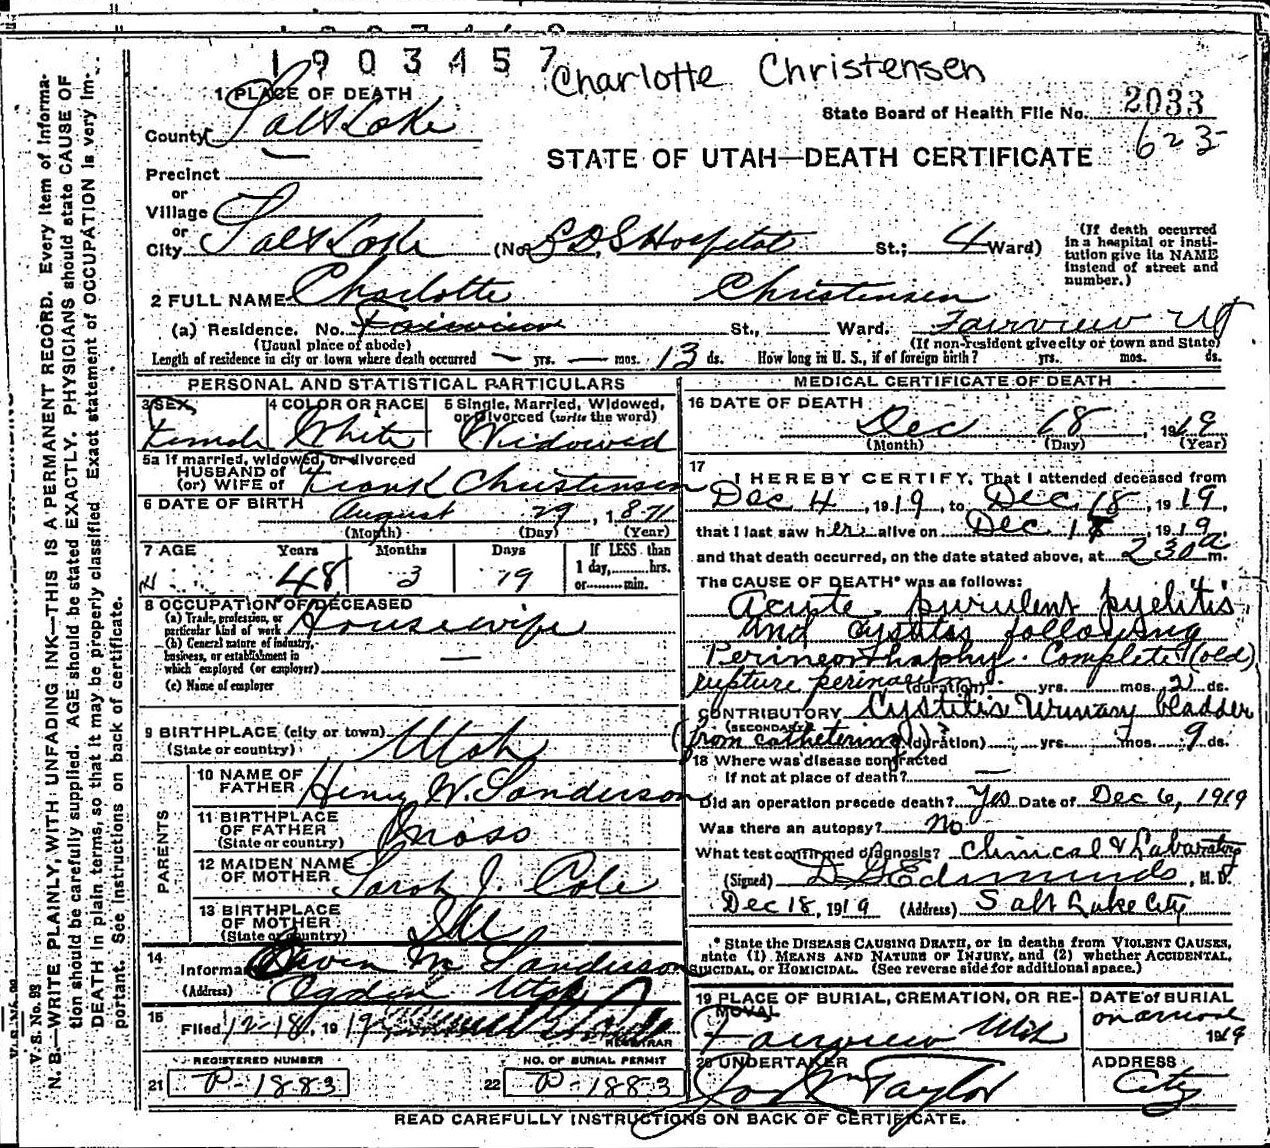 1903457
Charlotte Christensen
1 PLACE OF DEATH
County Salt Lake
State Board of Health File No. 2033
623
STATE OF UTAH—DEATH CERTIFICATE
Precinct
or
Village
or
City Salt Lake (No. L D S Hospital St.; 4 Ward)
(If death occurred in a hospital or institution give its NAME instead of street and number.)
2 FULL NAME Charlotte Christensen
(a) Residence. No. Fairview St., Ward. Fairview Ut
(Usual place of abode) (If non-resident give city or town and State)
Length of residence in city or town where death occurred — yrs. — mos. 13 ds. How long in U. S., if of foreign birth? yrs. mos. ds.
PERSONAL AND STATISTICAL PARTICULARS
3 SEX 4 COLOR OR RACE 5 Single, Married, Widowed, or Divorced (write the word)
Female White Widowed
5a If married, widowed, or divorced
HUSBAND of
(or) WIFE of Frank Christensen
6 DATE OF BIRTH August 29, 1871
(Month) (Day) (Year)
7 AGE Years Months Days If LESS than
48 3 19 1 day, hrs.
or min.
8 OCCUPATION OF DECEASED
(a) Trade, profession, or
particular kind of work Housewife
(b) General nature of industry,
business, or establishment in
which employed (or employer) —
(c) Name of employer
9 BIRTHPLACE (city or town) Utah
(State or country)
PARENTS
10 NAME OF
FATHER Henry W. Sanderson
11 BIRTHPLACE
OF FATHER
(State or country)
12 MAIDEN NAME
OF MOTHER Sarah J. Cole
13 BIRTHPLACE
OF MOTHER Ill
(State or country)
14
Informant M Sanderson
(Address) Ogden Utah
15
Filed 12-18, 1919
REGISTRAR
REGISTERED NUMBER NO. OF BURIAL PERMIT
21 P-1883 22 P-1883
MEDICAL CERTIFICATE OF DEATH
16 DATE OF DEATH
Dec 18, 1919
(Month) (Day) (Year)
17
I HEREBY CERTIFY, That I attended deceased from
Dec 4, 1919, to Dec 18, 1919,
that I last saw her alive on Dec 18 1919
and that death occurred, on the date stated above, at 230 a m.
The CAUSE OF DEATH* was as follows:
Acute purulent pyelitis
and cystitis following
Perineorrhaphy. Complete (old)
rupture perineum (duration) yrs. mos. 2 ds.
CONTRIBUTORY Cystitis Urinary bladder
(SECONDARY)
(from cathetering)? (duration) yrs. mos. 9 ds.
18 Where was disease contracted
if not at place of death? —
Did an operation precede death? Yes Date of Dec 6, 1919
Was there an autopsy? No
What test confirmed diagnosis? Clinical & Laboratory
(Signed) D G Edmunds, M. D.
Dec 18, 1919 (Address) Salt Lake City
* State the DISEASE CAUSING DEATH, or in deaths from VIOLENT CAUSES,
state (1) MEANS AND NATURE OF INJURY, and (2) whether ACCIDENTAL,
SUICIDAL, or HOMICIDAL. (See reverse side for additional space.)
19 PLACE OF BURIAL, CREMATION, OR REMOVAL DATE of BURIAL
Fairview Utah on arrival 1919
20 UNDERTAKER ADDRESS
Jos Wm Taylor City
READ CAREFULLY INSTRUCTIONS ON BACK OF CERTIFICATE.
V. S. No. 93
N. B.—WRITE PLAINLY, WITH UNFADING INK—THIS IS A PERMANENT RECORD. Every item of information should be carefully supplied. AGE should be stated EXACTLY. PHYSICIANS should state CAUSE OF DEATH in plain terms, so that it may be properly classified. Exact statement of OCCUPATION is very important. See instructions on back of certificate.